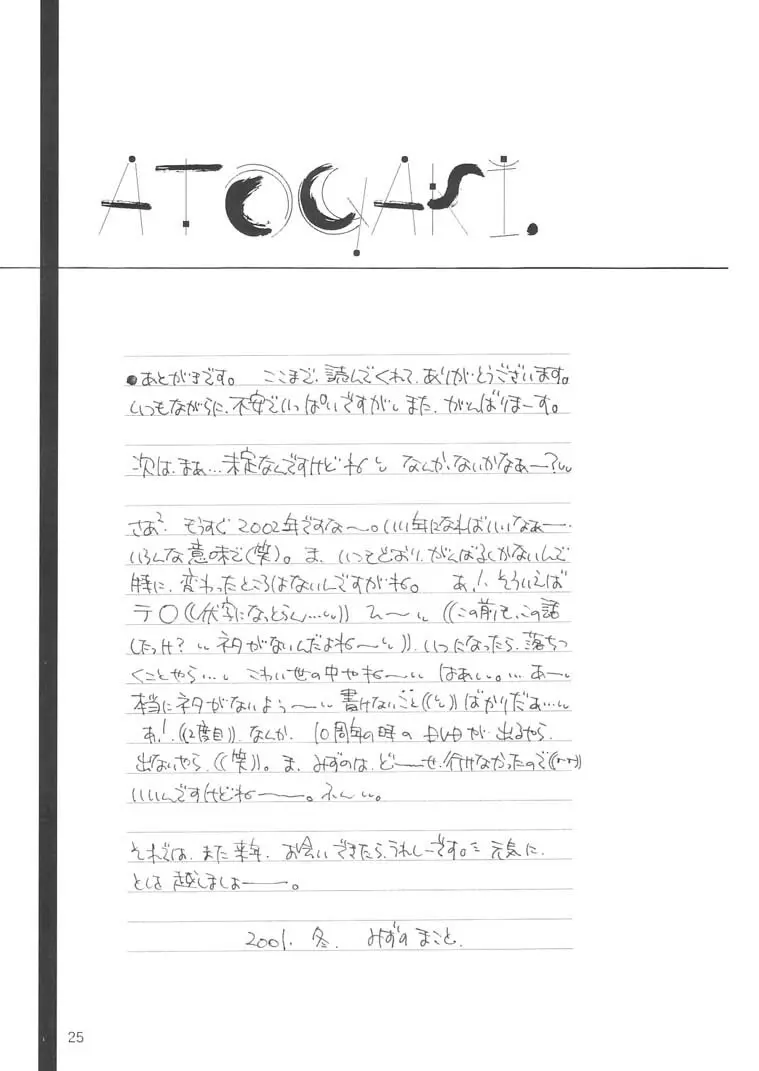 ATOGAKI.
●あとがきです。 ここまで、読んでくれて、ありがとうございます。
いつもながらに、不安でいっぱいですが、また、がんばりまーす。
次は、まぁ…未定なんですけどね なんか、ないかなぁー?
さあ² もうすぐ2002年ですな〜。いい年になればいいなぁー
いろんな意味で(笑)。ま、いつもどおり、がんばるしかないんで
特に、変わったところはないんですがね。 あ!そういえば
テ〇((伏字になっとらん…)) ((この前も、この話
したっけ? ネタがないんだよね〜))、いつになったら、落ちつ
くことやら… こわい世の中やね〜 はぁ…。…あー
本当にネタがないよぅ〜 書けないこと ばかりだぁ…
あ!((2度目))、なんか、10周年の時の DVDが、出るやら、
出ないやら、((笑))。ま、みずのは、どーせ、行けなかったので
いいんですけどねー。ふん。
それでは、また来年、お会いできたら、うれしーです。元気に、
とし越しましょー。
2001. 冬. みずの まこと.
25